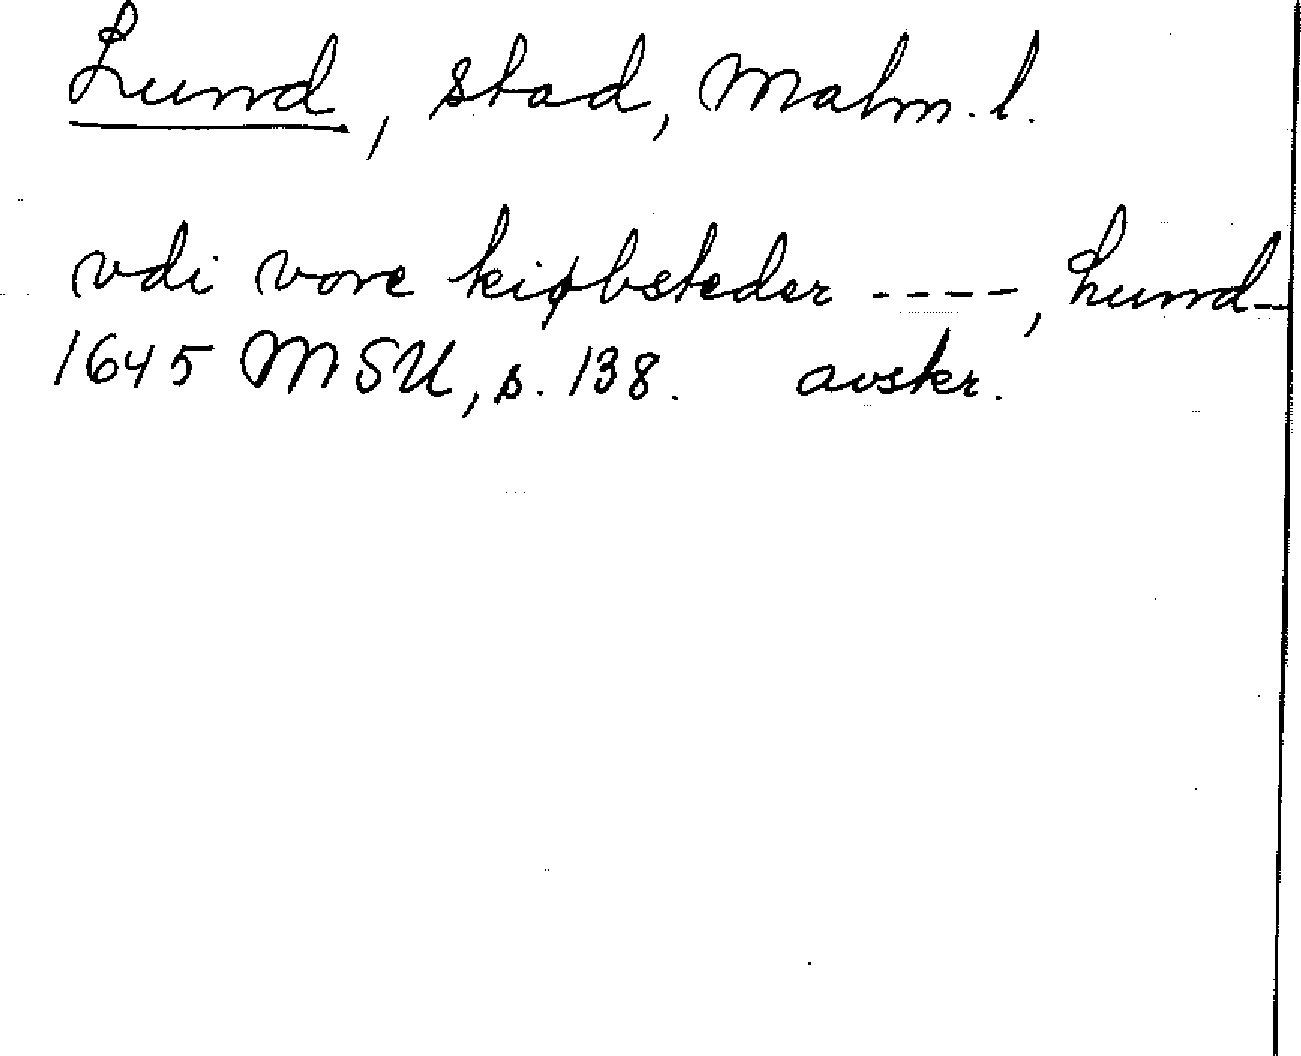 Lund, stad, Malm. l.
vdi vore kiøbsteder ----, Lund-
1645 MSU, s. 138. avskr.